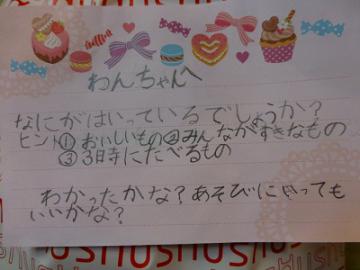 わんちゃんへ
なにがはいっているでしょうか?
ヒント①おいしいもの②みんながすきなもの
③3時にたべるもの
わかったかな?あそびにいっても
いいかな?